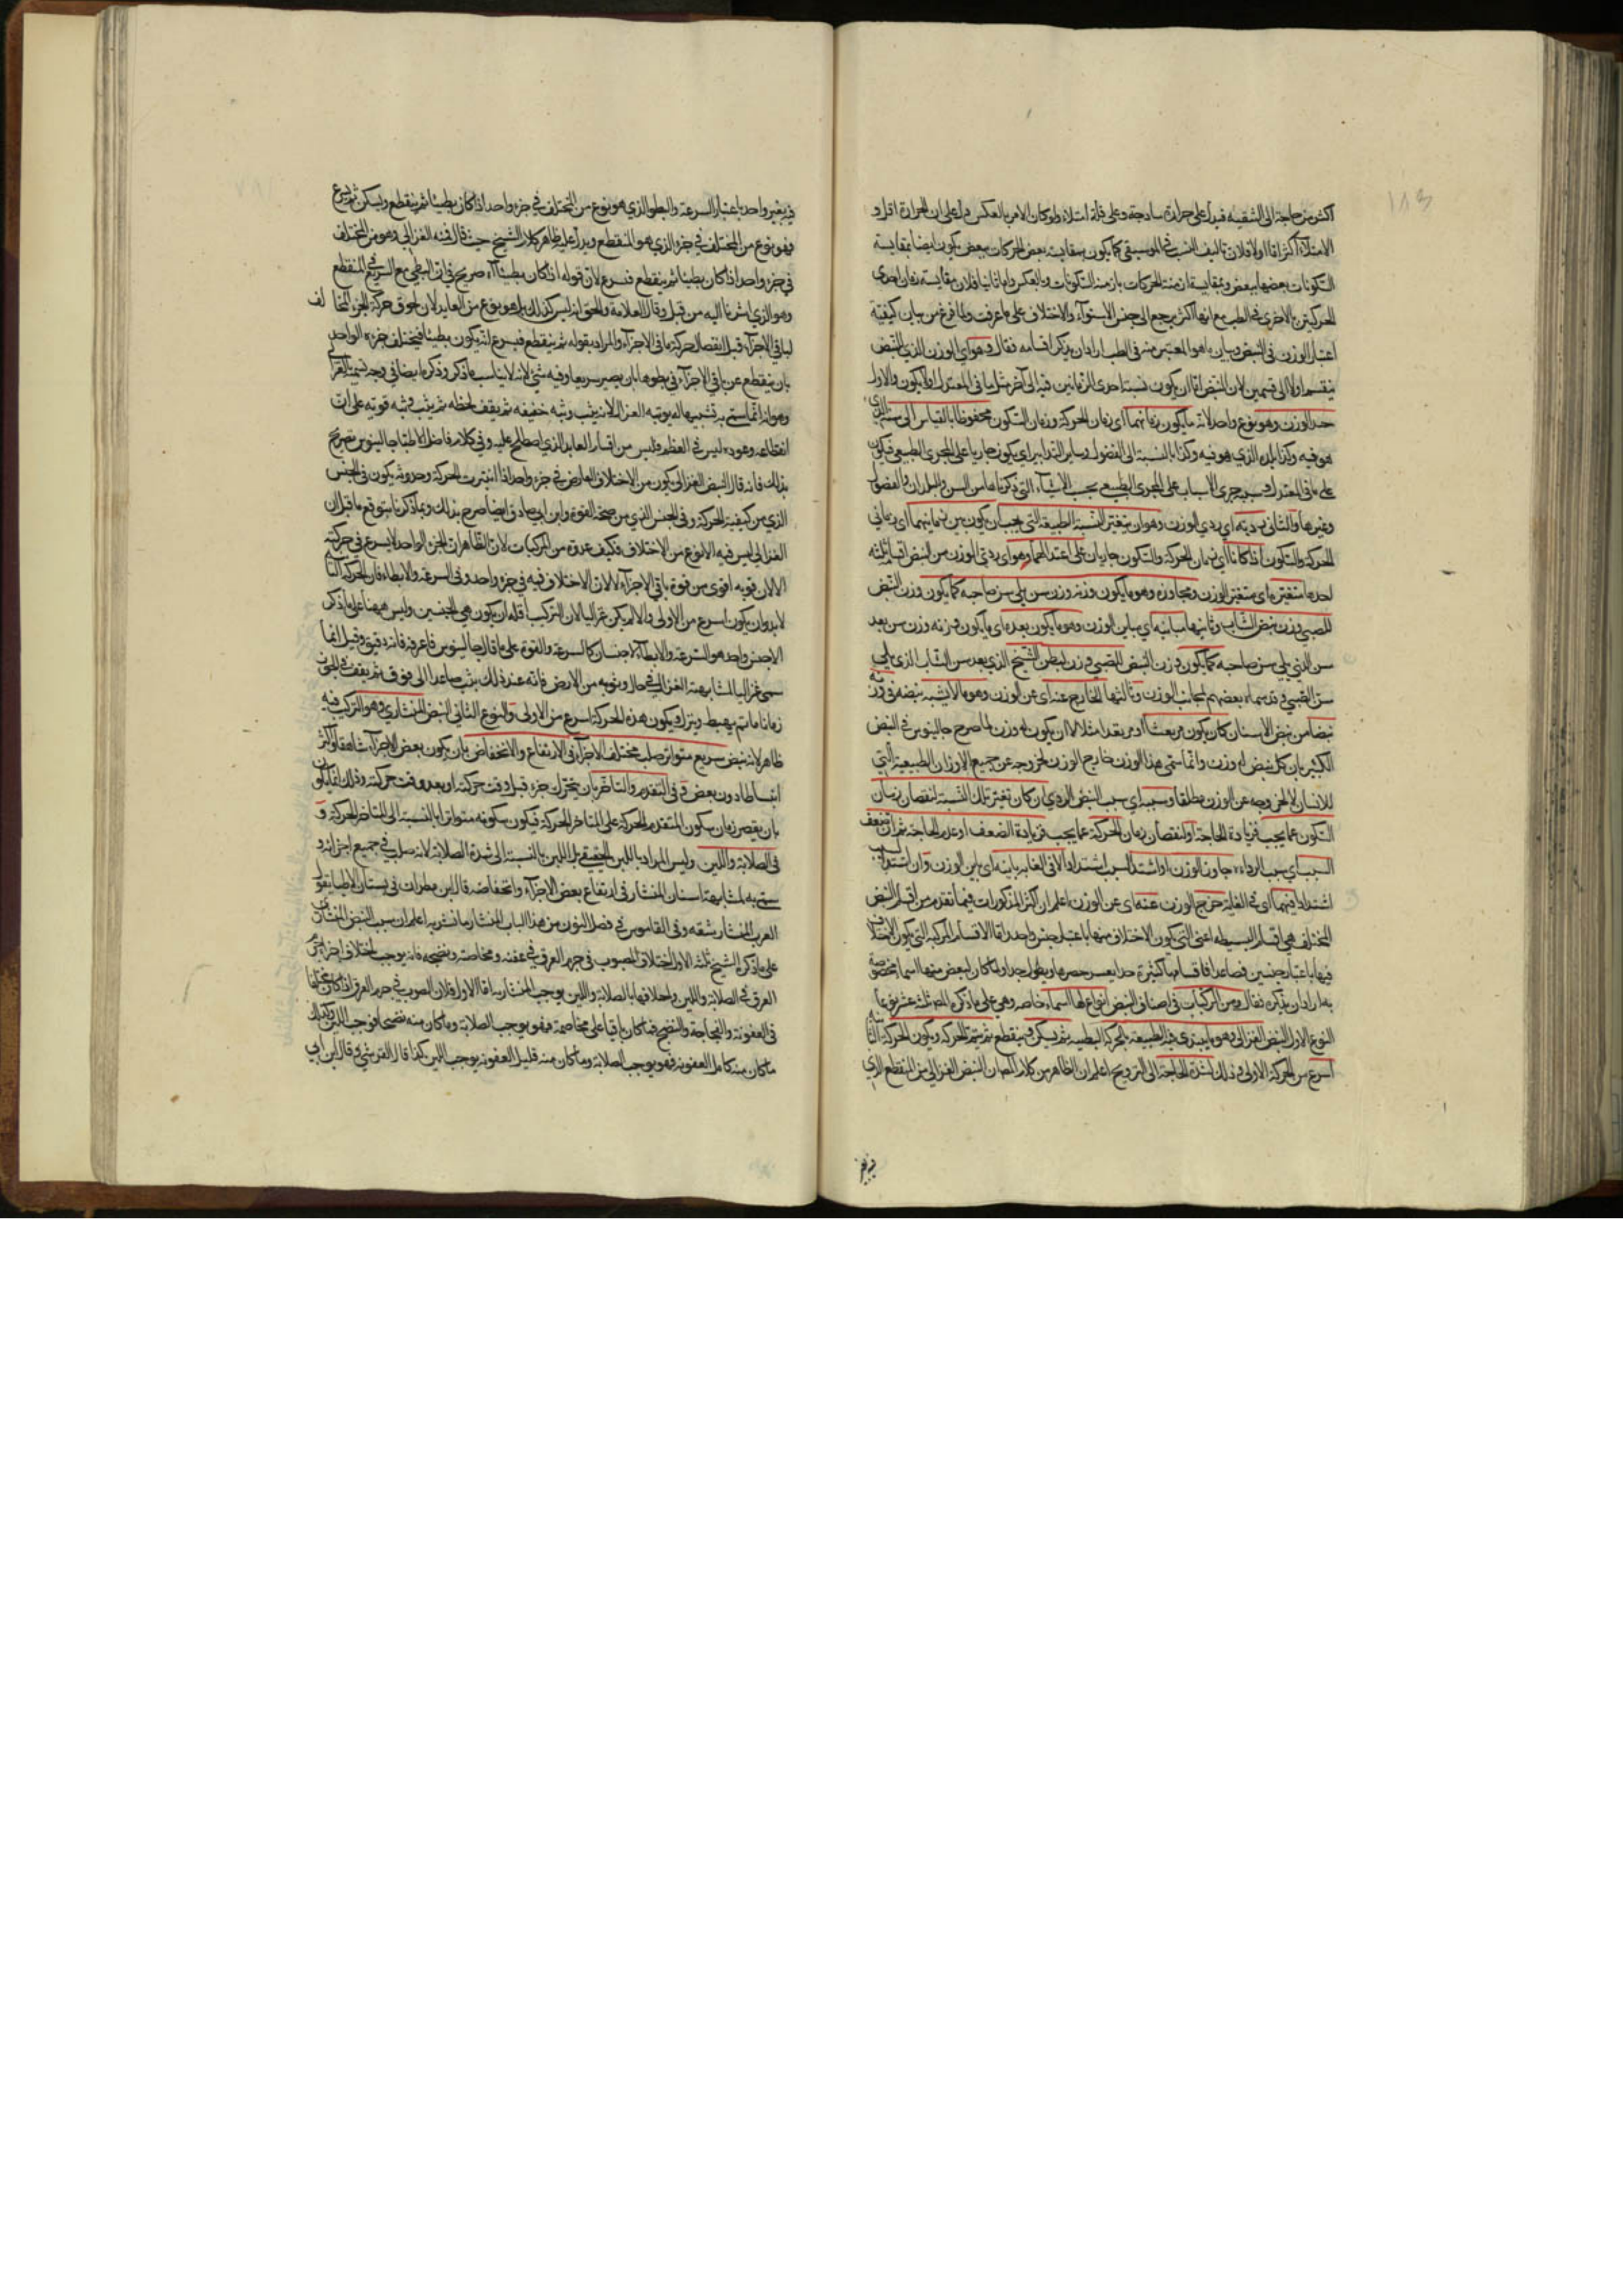 اكثر من حاجة الى التنقية فيدل على حرارة ساذجة وعلى قلة امتلاء ولو كان الامر بالعكس دل على ان الحرارة اقل و
الامتلاء اكثر اما اولا فلان تاليف النسب في الموسيقى كما يكون بمقايسة بعض الحركات ببعض يكون ايضا بمقايسة
السكونات بعضها ببعض وبمقايسة ازمنة الحركات بازمنة السكونات وبالعكس واما ثانيا فلان مقايسة زمان احدى
الحركتين بالاخرى في الطب مع انها اكثر يرجع الى جنس الاستواء والاختلاف على ما عرفت ولما فرغ من بيان كيفية
اعتبار الوزن في النبض وبيان ما هو المعتبر منه في الطب اراد ان يذكر اقسامه فقال وهو اي الوزن الذي للنبض
ينقسم اولا الى قسمين لان النبض اما ان يكون نسبة احدى الزمانين فيه الى آخر مثل ما في المعتدل او لا يكون والاول
حسن الوزن وهو نوع واحد لانه ما يكون زمانهما اي زمان الحركة وزمان السكون محفوظا بالقياس الى سنه الذي
هو فيه وكذا بلده الذي هو فيه وكذا بالنسبة الى الفصول وساير التدابير اي يكون جاريا على المجرى الطبيعي فيكون
على ما في المعتدل بحسب جري الاسباب على المجرى الطبيعي بحسب الاشياء التي ذكرناها من السن والبلدان والفصول
وغيرها والثاني رديه اي ردي الوزن وهو ان يتغير النسبة الطبيعة التي يجب ان يكون بين زمانيهما اي زماني
الحركة والسكون اذا كانا اي زمان الحركة والسكون جاريان على اعتدالهما وهو اي ردي الوزن من النبض اقسام ثلثة
احدها متغير اي متغير الوزن ومجاوزه وهو ما يكون وزنه وزن سن يلي سن صاحبه كما يكون وزن النبض
للصبي وزن نبض الشباب وثانيها مباينه اي مباين الوزن وهو ما يكون بعده اي ما يكون وزنه وزن سن بعد
سن الذي يلي سن صاحبه كما يكون وزن النبض للصبي وزن لنبض الشيخ الذي بعد سن الشاب الذي يلي
سن الصبي وقد سماه بعضهم لمجانب الوزن وثالثها الخارج عنه اي عن الوزن وهو ما لا يشبه نبضه في وزنه
نبضا من نبض الاسنان كان يكون مرتعشا او
الكبير بان كل نبض له وزن وانما سمي هذا الوزن خارج الوزن لخروجه عن جميع الاوزان الطبيعية التي
للانسان لا لخروجه عن الوزن مطلقا وسببه اي سبب النبض الردي ان كان تغير تلك النسبة لنقصان زمان
السكون عما يجب فزيادة الحاجة او لنقصان زمان الحركة عما يجب فزيادة الضعف او عدم الحاجة ثم ان ضعف
السبب اي سبب الرداءة جاوز الوزن او اشتد السبب اشتدادا لا في الغاية باينه اي باين الوزن وان اشتد السبب
اشتدادا فيهما اي في الغاية خرج الوزن عنه اي عن الوزن اعلم ان اكثر المذكورات فيما تقدم من اقسام النبض
المختلف هي اقسام البسيطة اعني التي يكون الاختلاف منها باعتبار جنس واحد واما الاقسام المركبة التي يكون الاختلاف
فيها باعتبار جنسين فصاعدا فاقسامها كثيرة جدا يعسر حصرها ويطول جدا ولما كان لبعض منها اسما مخصوصة
به اراد ان يذكره فقال ومن المركبات في اصناف النبض انواع لها اسماء خاصه وهي على ما ذكره المص ثلثة عشر نوعا
النوع الاول النبض الغزالي وهو ما يبتدي فيه الطبيعة بالحركة البطيئة ثم يسكن فينقطع ثم يتم الحركة ويكون الحركة الثانية
اسرع من الحركة الاولى وذلك لشدة الحاجة الى الترويح اعلم ان الظاهر من كلام المص ان النبض الغزالي من المنقطع الذي
فيه يغير واحد باعتبار السرعة والبطؤ الذي هو نوع من المختلف في جزء واحد اذا كان بطيئا ثم ينقطع ويسكن ثم يسرع
فهو نوع من المختلف في جزء الذي هو المنقطع ويدل عليه ظاهر كلام الشيخ حيث قال فمنه الغزالي وهو من المختلف
في جزء واحد اذا كان بطيئا ثم ينقطع فيسرع لان قوله اذا كان بطيئا آه صريح في ان البطي مع السريع في المنقطع
وهو الذي اشرنا اليه من قبل وقال العلامة والحق انه ليس كذلك بل هو نوع من العايد لان لحوق حركة الجزء المخالف
لباقي الاجزاء قبل انفصال حركة باقي الاجزاء والمراد بقوله ثم ينقطع فيسرع انه يكون بطيئا فيختلف جزءه الواحد
بان ينقطع عن باقي الاجزاء في بطوها بان يصير سريعا وفيه شيء لانه لا يناسب ما ذكر وذكره ايضا في وجه تسمية الغزالي
وهو انه انما سمي به تشبيها له بوثبة الغزال لانه يثب وثبة خفيفة ثم يقف لحظه ثم يثب وثبه قويه على ان
انقطاعه وعوده ليس في العظم فليس من اقسام العايد الذي اصطلح عليه وفي كلام فاضل الاطبا جالينوس تصريح
بذلك فانه قال النبض الغزالي يكون من الاختلاف العارض في جزء واحد اذا انبترت الحركة وحدوثه يكون في الجنس
الذي من كيفية الحركة وفي الجنس الذي من صحة القوة وابن ابي صادق ايضا صرح بذلك وبما ذكرنا يتوقع ما قيل ان
الغزالي ليس فيه الا نوع من الاختلاف فكيف عدوه من المركبات لان الظاهر ان الجزء الواحد لا يسرع في حركته
الا لان قوته اقوى من قوة باقي الاجزاء لا لان الاختلاف فيه في جزء واحد وفي السرعة والابطاء فان الحركة الثانية
لابد وان يكون اسرع من الاولى والا لم يكن غزاليا لان التركيب اقله ان يكون في الجنسين وليس ههنا على ما ذكر
الا جنس واحد هو السرعة والابطاء لا جنسان كالسرعة والقوة على ما قال جالينوس فاعرفه فانه دقيق وقيل انما
سمي غزاليا لمشابهته الغزال في حال وثوبه من الارض فانه عند ذلك يثب صاعدا الى فوق ثم يقف في الجو
زمانا ما ثم يهبط وينزل ويكون هذه الحركة اسرع من الاولى والنوع الثاني النبض المنشاري وهو التركيب فيه
ظاهر لانه نبض سريع متواتر صلب مختلف الاجزاء في الارتفاع والانخفاض بان يكون بعض الاجزاء شاهقا واكثر
انبساطا دون بعض و في التقدم والتاخر بان يتحرك جزء قبل وقت حركته او بعد وقت حركته وذلك انما يكون
بان يقصر زمان سكون المتقدم الحركة على المتاخر الحركة فيكون سكونه متواترا بالنسبة الى المتاخر الحركة و
في الصلابة واللين وليس المراد باللين الحقيقي بل اللين بالنسبة الى شدة الصلابة لانه صلب في جميع اجزائه و
سمي به لمشابهته اسنان المنشار في ارتفاع بعض الاجزاء وانخفاضه قال ابن مطران في بستان الاطبا يقول
العرب المنشار بشقه وفي القاموس في فصل النون من هذا الباب المنشار ما نشر به اعلم ان سبب النبض المنشاري
على ما ذكره الشيخ ثلثة الاول اختلاف المصبوب في جرم العرق في عفنه وفجاجته ونضجه فانه يوجب اختلاف اجزاء جرم
العرق في الصلابة واللين واختلافها بالصلابة واللين يوجب المنشارية اما الاول فلان المصبوب في جرم العرق اذا كان مختلفا
في العفونة والفجاجة والنضج فما كان باقيا على فجاجته فهو يوجب الصلابة وما كان منه نضيجا فيوجب اللين وكذلك
ما كان منه كامل العفونة فهو يوجب الصلابة وما كان منه قليل العفونة يوجب اللين كذا قال القرشي وقال ابن ابي